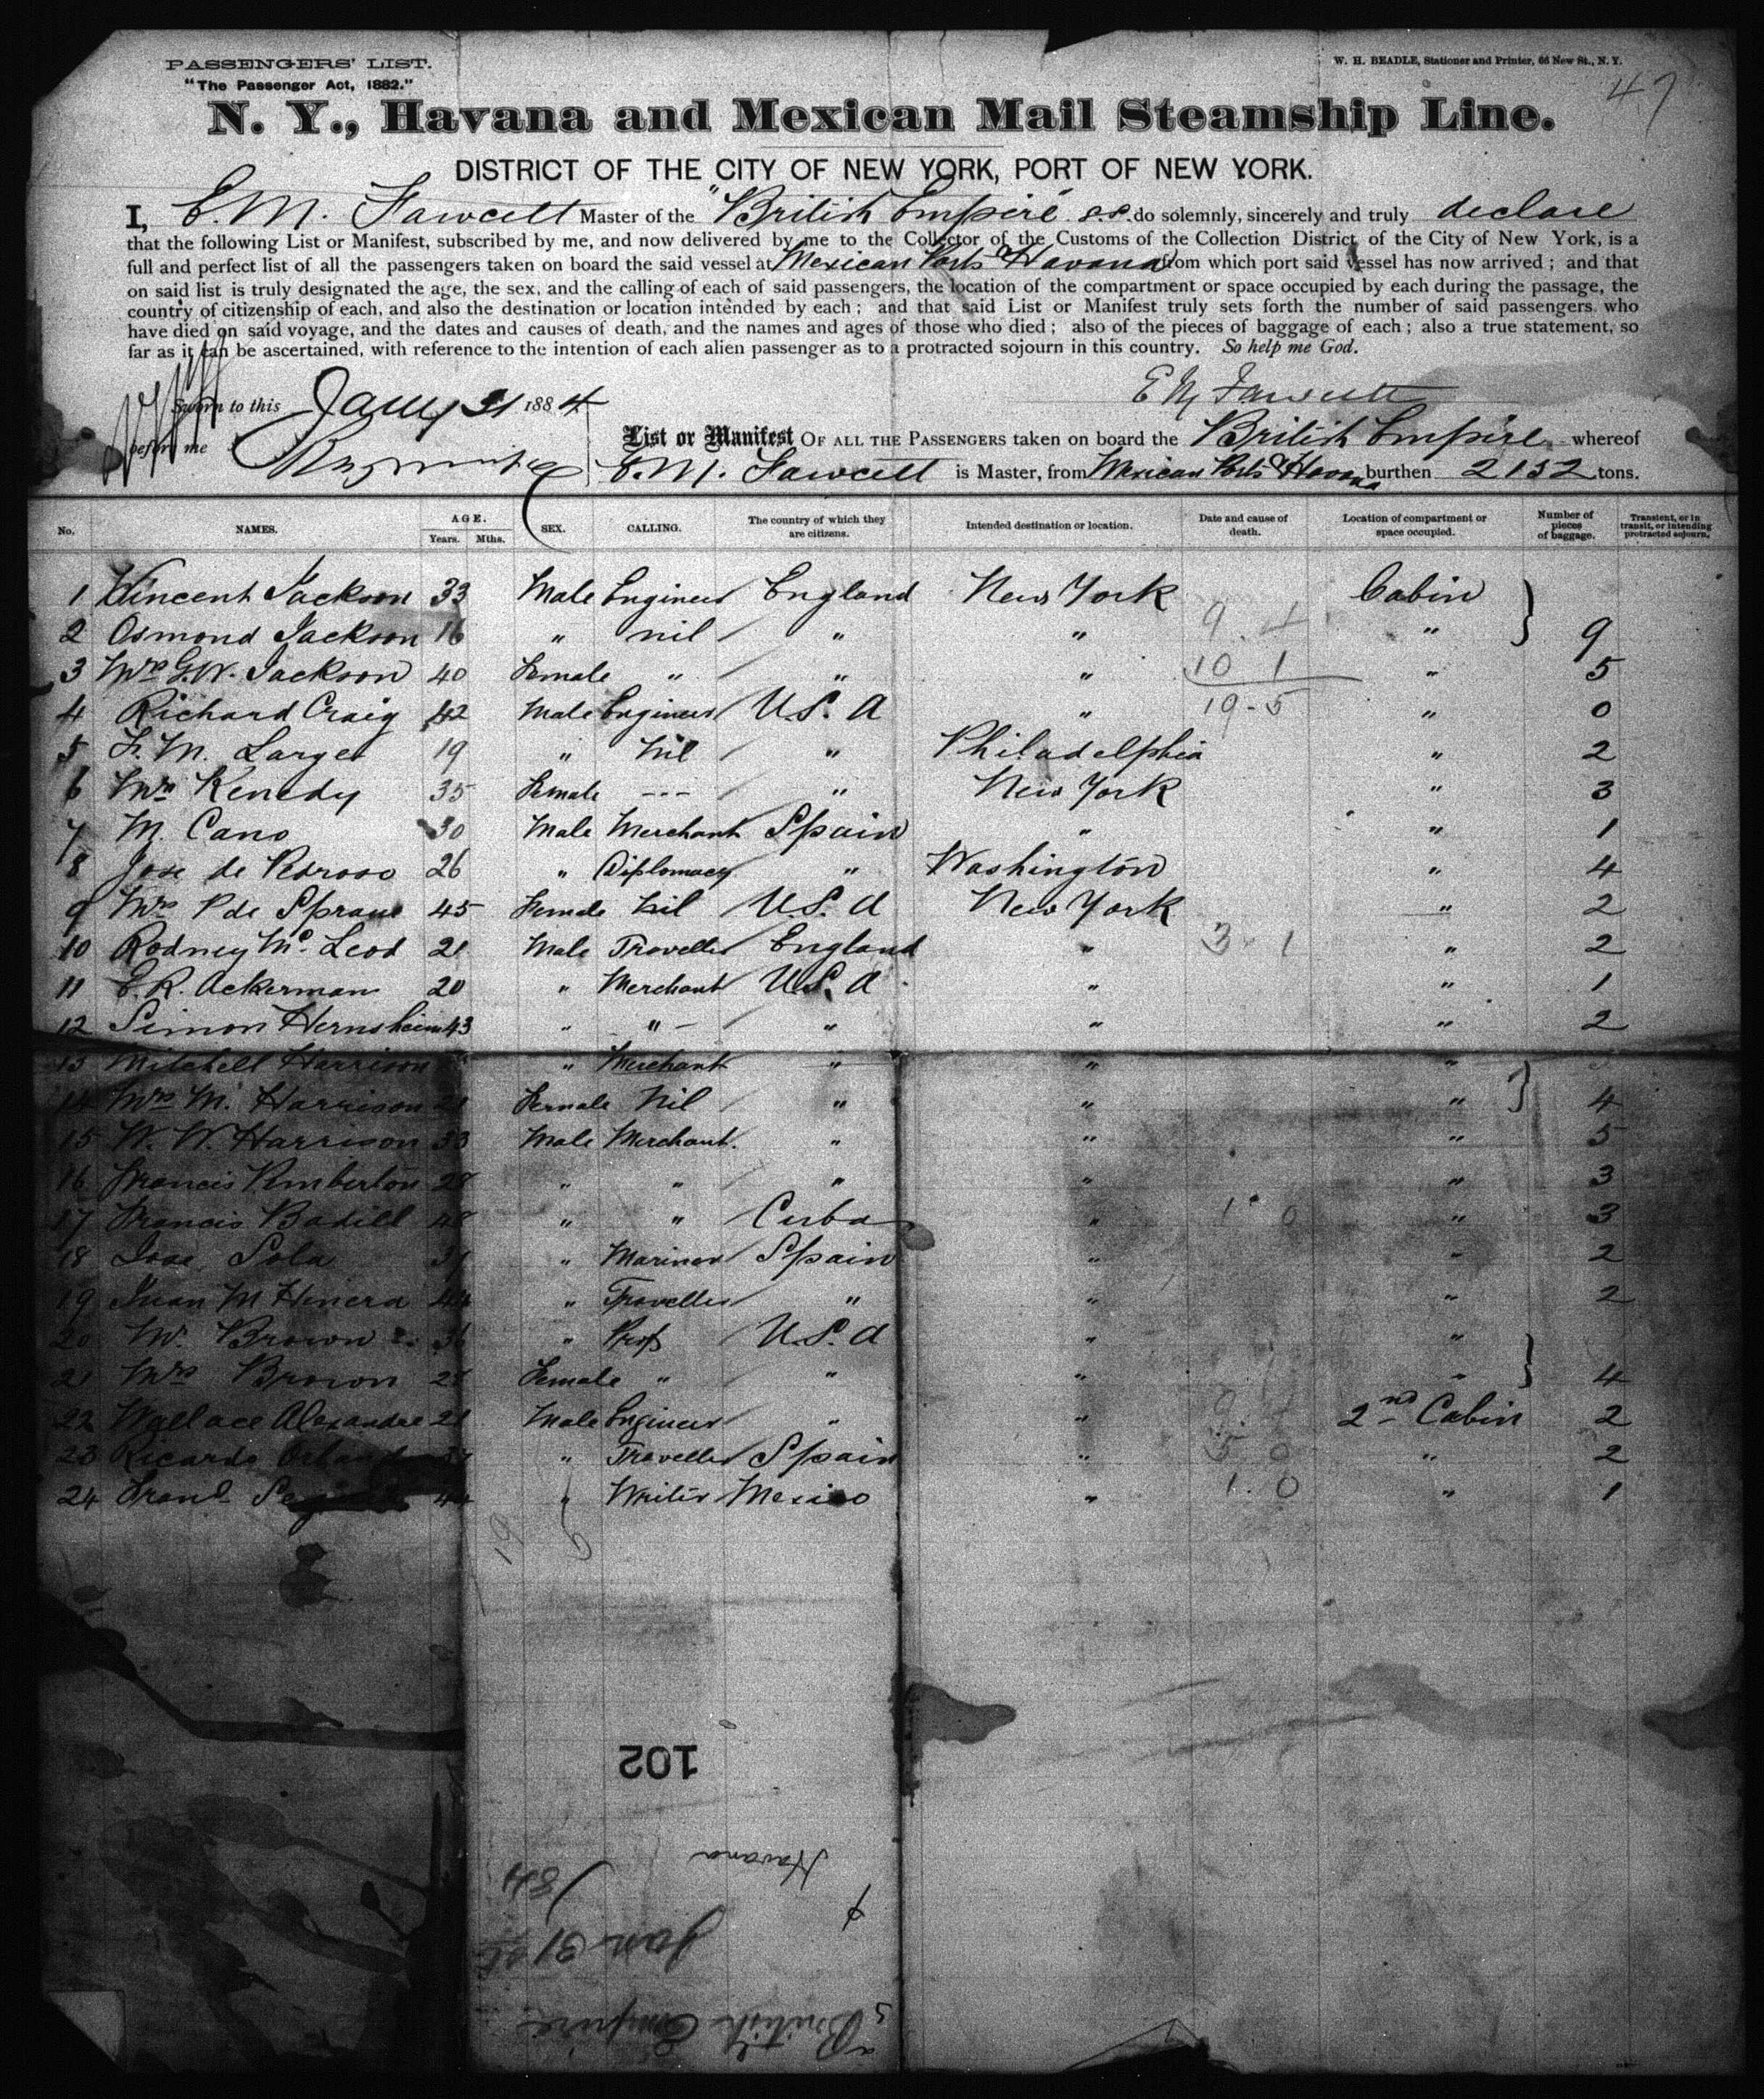 PASSENGERS' LIST.
"The Passenger Act, 1882."
W. H. BEADLE, Stationer and Printer, 66 New St., N. Y.
47
N. Y., Havana and Mexican Mail Steamship Line.
DISTRICT OF THE CITY OF NEW YORK, PORT OF NEW YORK.
I, E. M. Fawcett Master of the "British Empire" s.s. do solemnly, sincerely and truly declare
that the following List or Manifest, subscribed by me, and now delivered by me to the Collector of the Customs of the Collection District of the City of New York, is a
full and perfect list of all the passengers taken on board the said vessel at Mexican Ports & Havana from which port said vessel has now arrived; and that
on said list is truly designated the age, the sex, and the calling of each of said passengers, the location of the compartment or space occupied by each during the passage, the
country of citizenship of each, and also the destination or location intended by each; and that said List or Manifest truly sets forth the number of said passengers who
have died on said voyage, and the dates and causes of death, and the names and ages of those who died; also of the pieces of baggage of each; also a true statement, so
far as it can be ascertained, with reference to the intention of each alien passenger as to a protracted sojourn in this country. So help me God.
E M Fawcett
Sworn to this Jany 31 1884
before me
List or Manifest OF ALL THE PASSENGERS taken on board the British Empire whereof
E. M. Fawcett is Master, from Mexican Ports & Havana burthen 2132 tons.
No. NAMES. AGE. Years. Mths. SEX. CALLING. The country of which they are citizens. Intended destination or location. Date and cause of death. Location of compartment or space occupied. Number of pieces of baggage. Transient, or in transit, or intending protracted sojourn.
1 Vincent Jackson 33 Male Engineer England New York Cabin
2 Osmond Jackson 16 " nil " " 9 4 " 9
3 Mrs G.W. Jackson 40 Female " " " 10 1 " 5
4 Richard Craig 42 Male Engineer U.S. A " 19-5 " 0
5 F. M. Larger 19 " Nil " Philadelphia " 2
6 Mrs Kenedy 35 Female --- " New York " 3
7 M. Cano 30 Male Merchant Spain " " 1
8 Jose de Pedroso 26 " Diplomacy " Washington " 4
9 Mrs P de 45 Female Nil U.S. A New York " 2
10 Rodney Mc Leod 21 Male Traveller England " 3 1 " 2
11 E. R. Ackerman 20 " Merchant U.S. A " " 1
12 Simon Hernsheim 43 " " - " " " 2
13 Mitchell Harrison " Merchant " " "
14 Mrs M. Harrison Female Nil " " " 4
15 W. W. Harrison 33 Male Merchant. " " " 5
16 Francis Pemberton 28 " " " " " 3
17 Francis Badill 48 " " Cuba " 1 0 " 3
18 Jose Sola " Mariner Spain " " 2
19 Juan M 44 " Traveller " " " 2
20 W. Brown " Prof U.S. A " "
21 Mrs Brown Female " " " " 4
22 Wallace Alexander 21 Male Engineer " " 2nd Cabin 2
23 Ricardo " Traveller Spain " 5 0 " 2
24 44 " Writer Mexico " 1. 0 " 1
19 5
102
Havana
&
84
Jan 31
British Empire